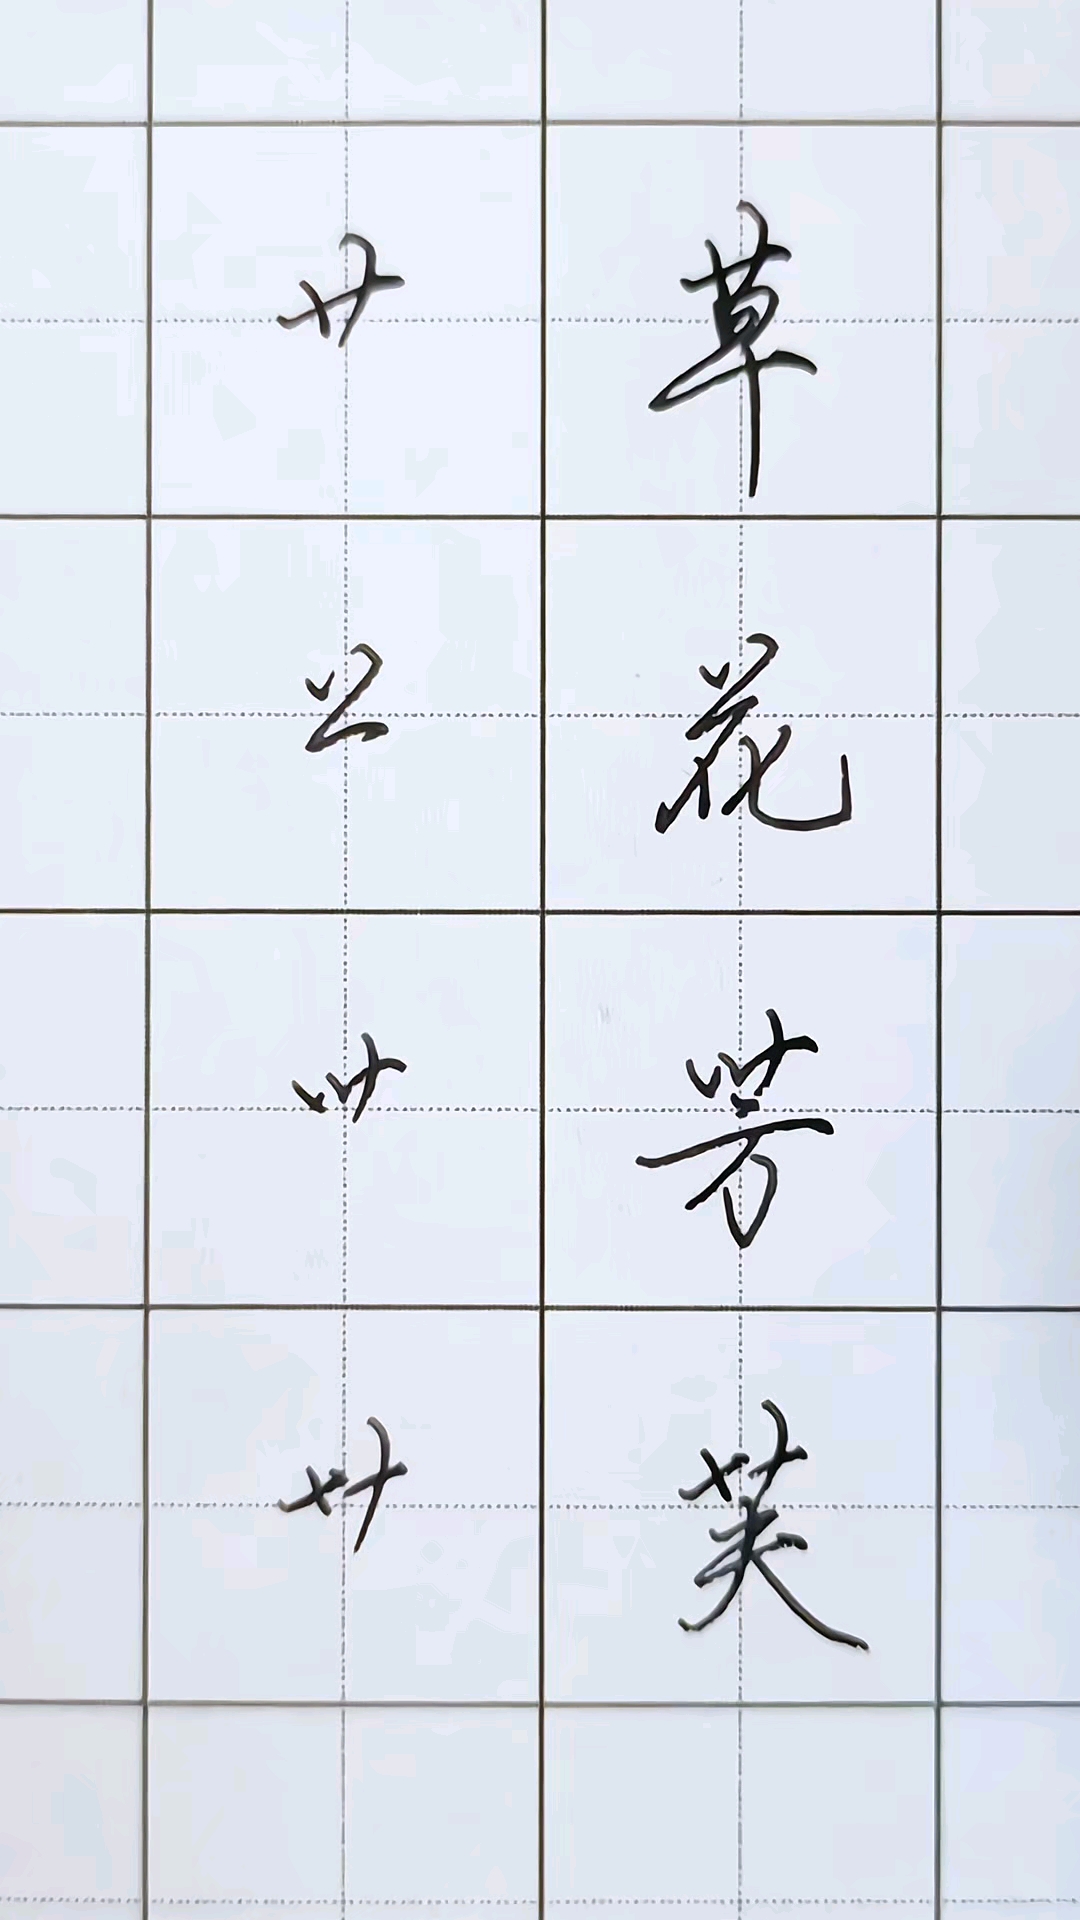 艹 草
艹 花
艹 芳
艹 芙